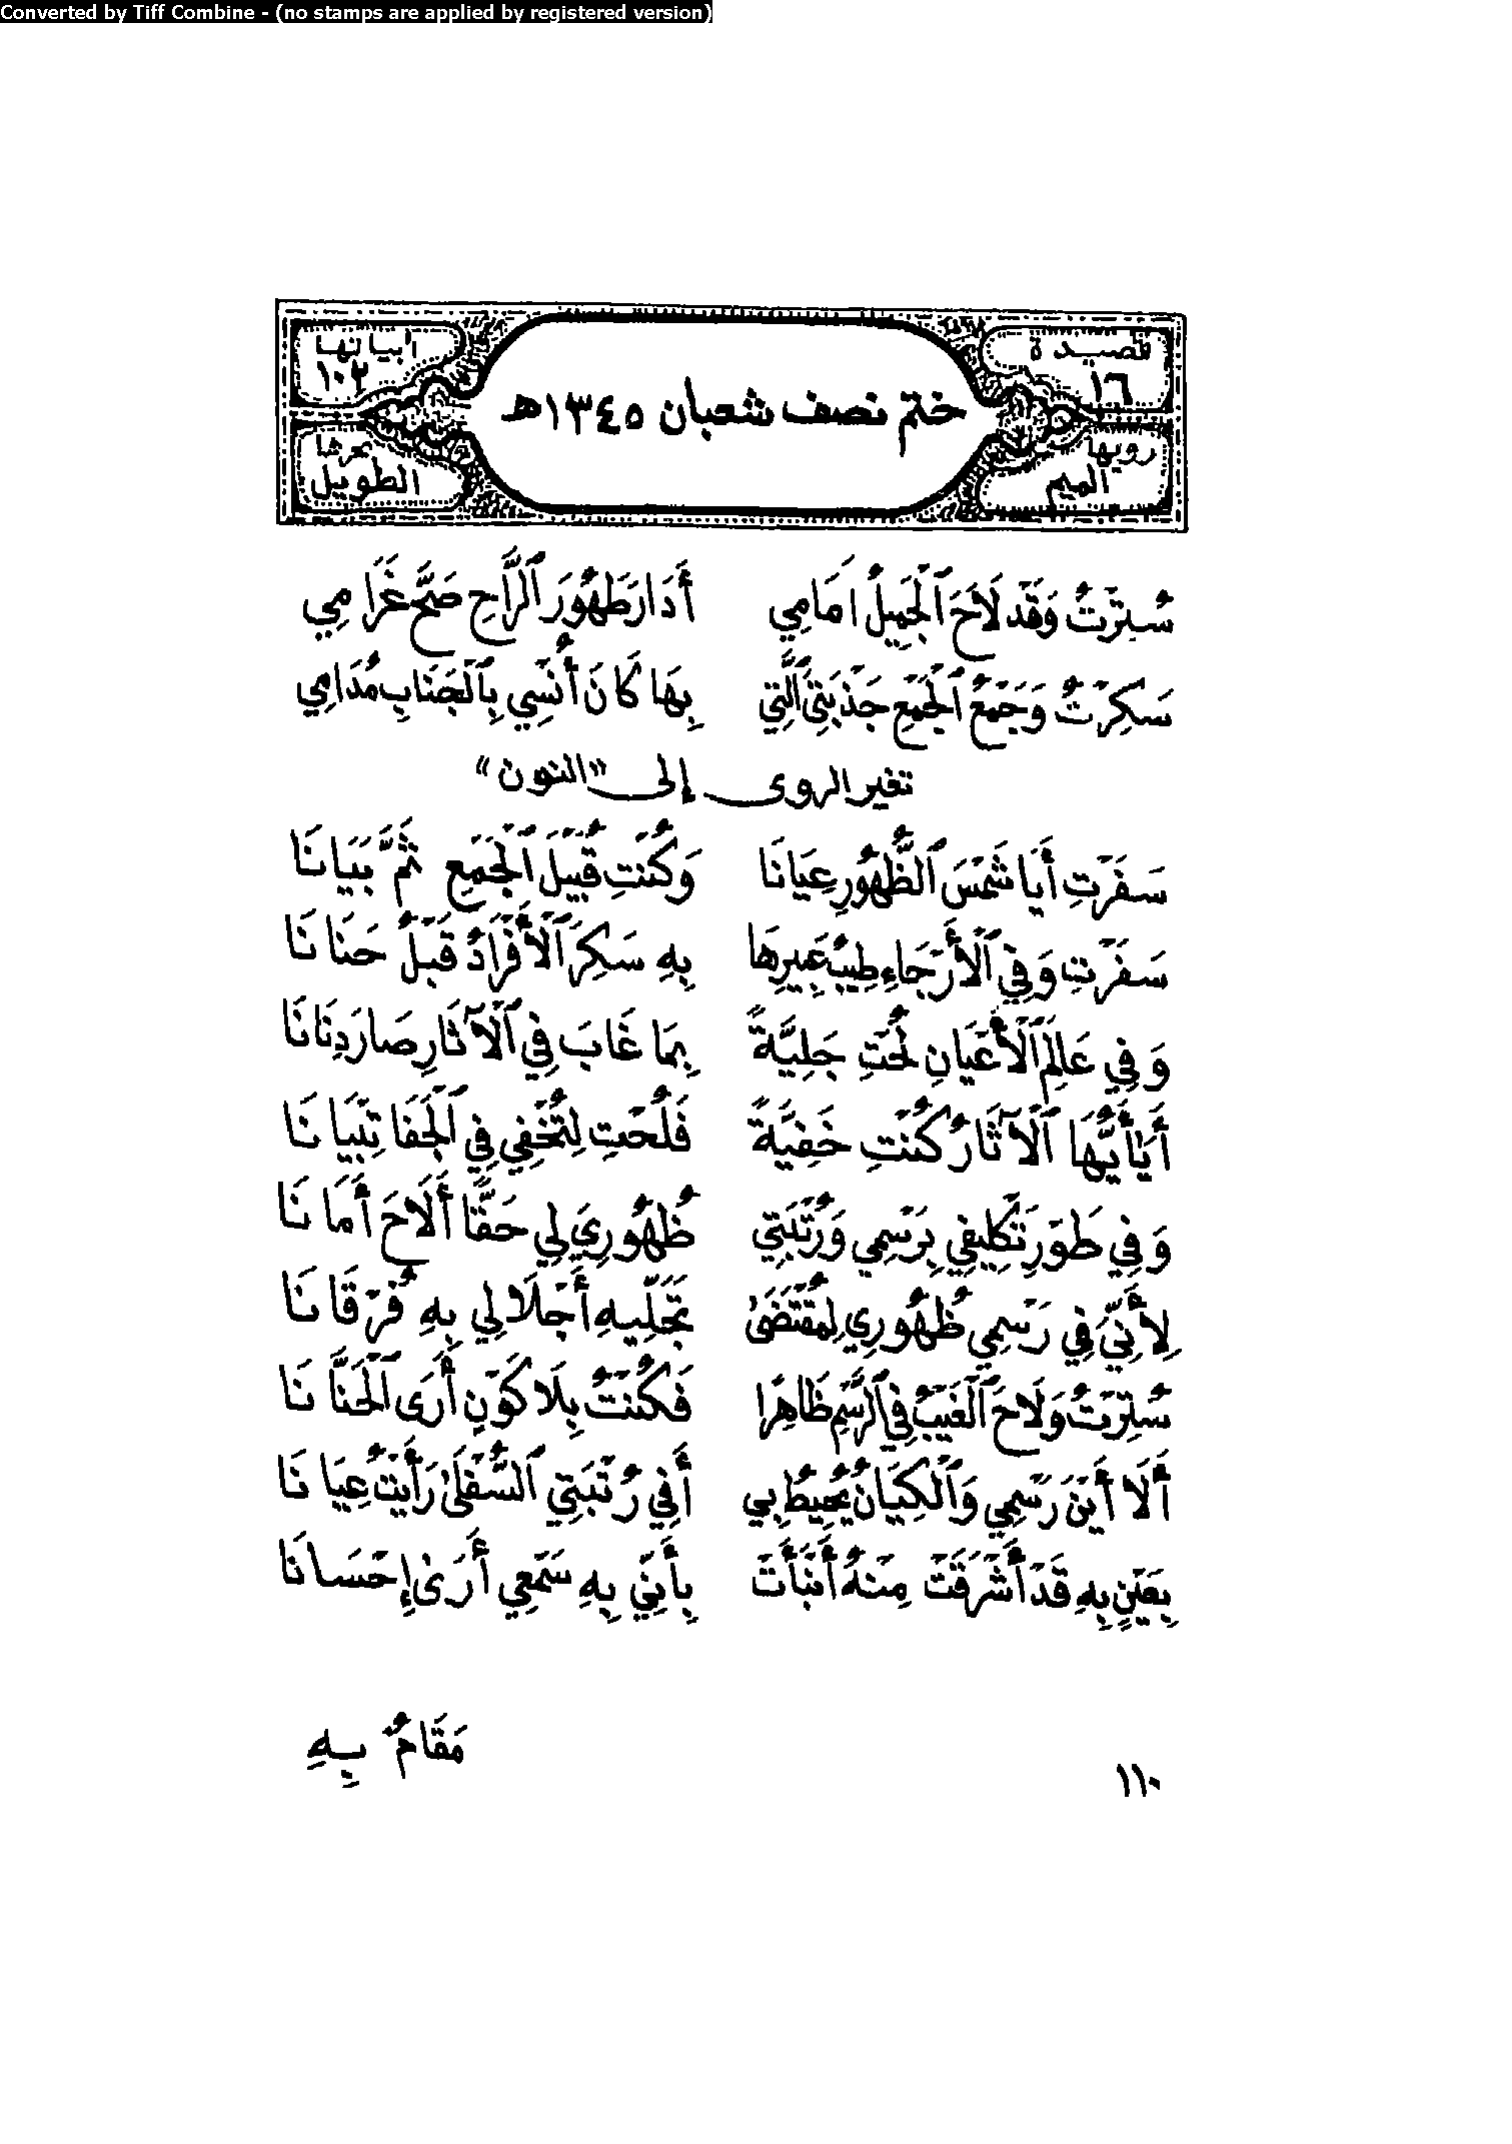 Converted by Tiff Combine - (no stamps are applied by registered version)
قصيدة ١٦
أبياتها ١٠٢
ختم نصف شعبان ١٣٤٥هـ
رويها الميم
بحرها الطويل
سُتِرْتُ وَقَدْ لَاحَ ٱلْجَمِيلُ أَمَامِي أَدَارَ طَهُورَ ٱلرَّاحِ صَحَّ غَرَامِي
سَكِرْتُ وَجَمْعُ ٱلْجَمْعِ جَذْبَتِيَ ٱلَّتِي بِهَا كَانَ أُنْسِي بِٱلْجَنَابِ مُدَامِي
تغير الروى إلى «النون»
سَفَرْتِ أَيَا شَمْسَ ٱلظُّهُورِ عِيَانَا وَكُنْتِ قُبَيْلَ ٱلْجَمْعِ ثَمَّ بَيَانَا
سَفَرْتِ وَفِي ٱلْأَرْجَاءِ طِيبُ عَبِيرِهَا بِهِ سَكِرَ ٱلْأَفْرَادُ قَبْلُ حَنَانَا
وَفِي عَالَمِ ٱلْأَعْيَانِ لُحْتِ جَلِيَّةً بِمَا غَابَ فِي ٱلْآثَارِ صَارَ دِنَانَا
أَيَا أَيُّهَا ٱلْآثَارُ كُنْتِ خَفِيَّةً فَلُحْتِ لِتُخْفِي فِي ٱلْجَفَا تِبْيَانَا
وَفِي طَوْرِ تَكْلِيفِي بِرَسْمِي وَرُتْبَتِي ظُهُورِيَ لِي حَقًّا أَلَاحَ أَمَانَا
لِأَنِّيَ فِي رَسْمِي ظُهُورِي لِمُقْتَضَىٰ تَجَلِّيهِ أَجْلَالِي بِهِ فُرْقَانَا
سُتِرْتُ وَلَاحَ ٱلْغَيْبُ فِي ٱلرَّسْمِ ظَاهِرًا فَكُنْتُ بِلَا كَوْنٍ أَرَى ٱلْحَنَّانَا
أَلَا أَيْنَ رَسْمِي وَٱلْكِيَانُ يُحِيطُ بِي أَفِي رُتْبَتِي ٱلسُّفْلَىٰ رَأَيْتُ عِيَانَا
بِعَيْنٍ بِهِ قَدْ أَشْرَقَتْ مِنْهُ أَنْبَأَتْ بِأَنِّي بِهِ سَمْعِي أَرَىٰ إِحْسَانَا
مَقَامٌ بِهِ
١١٠